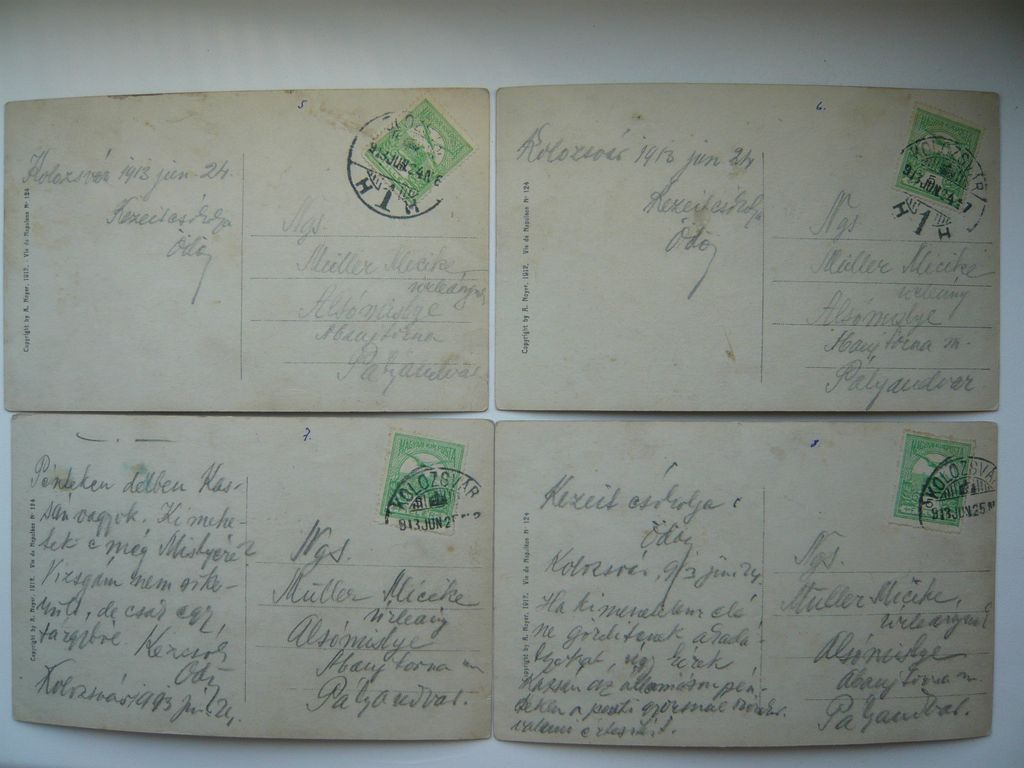 5
Kolozsvár 1913 jun 24.
Kezeit csókolja
Ödön
Copyright by A. Noyer, 1912. Vie de Napoléon № 124
913 JUN 24
Ngs.
Müller Micike
úrleány
Alsómislye
Abaujtorna
Pályaudvar.
6.
Kolozsvár 1913 jun 24
Kezeit csókolja
Ödön
Copyright by A. Noyer, 1912. Vie de Napoléon № 124
KOLOZSVÁR
913 JUN 24
1
Ngs
Müller Micike
úrleány
Alsómislye
Abaujtorna m.
Pályaudvar.
7.
Pénteken délben Kas-
sán vagyok. Ki mehe-
tek e még Mislyére?
Vizsgám nem sike-
rült, de csak egy
tárgyból. Kézcsók
Ödön
Kolozsvár 1913 jun. 24.
Copyright by A. Noyer, 1912. Vie de Napoléon № 124
MAGYAR KIR. POSTA
KOLOZSVÁR
913 JUN 25
Ngs.
Müller Micike
úrleány
Alsómislye
Abaujtorna m
Pályaudvar.
8
Kezeit csókolja:
Ödön
Kolozsvár, 913 jun 24.
Ha kimenetelem elé
ne gördítenek akadá-
lyokat, úgy kérek
Kassán az állomáson pén-
teken a pesti gyorsnál
valami értesítést.
Copyright by A. Noyer, 1912. Vie de Napoléon № 124
KOLOZSVÁR
913 JUN 25
Ngs.
Müller Micike,
úrleánynak
Alsómislye
Abaujtorna m
Pályaudvar.